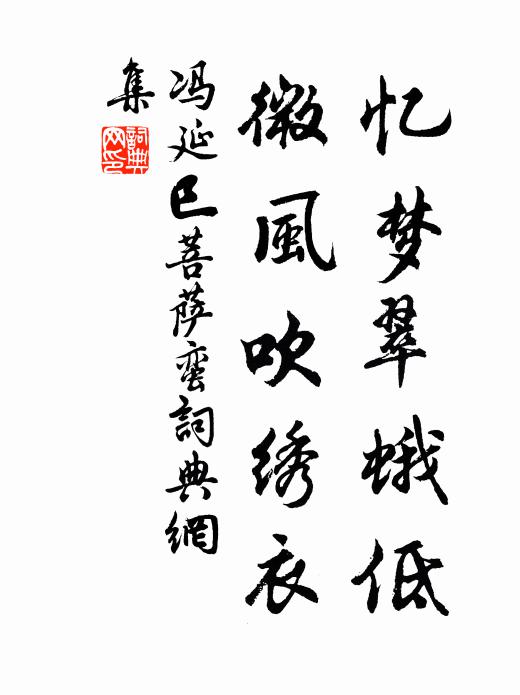 忆梦翠蛾低
微風吹绣衣
冯延巳菩萨蛮詞典網
集
詞典
网印